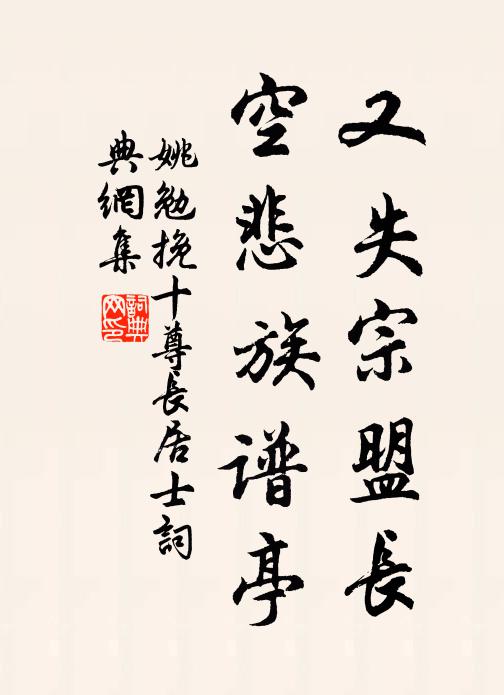 又失宗盟長
空悲族谱亭
姚勉挽十尊長居士詞
典網集
詞典网印